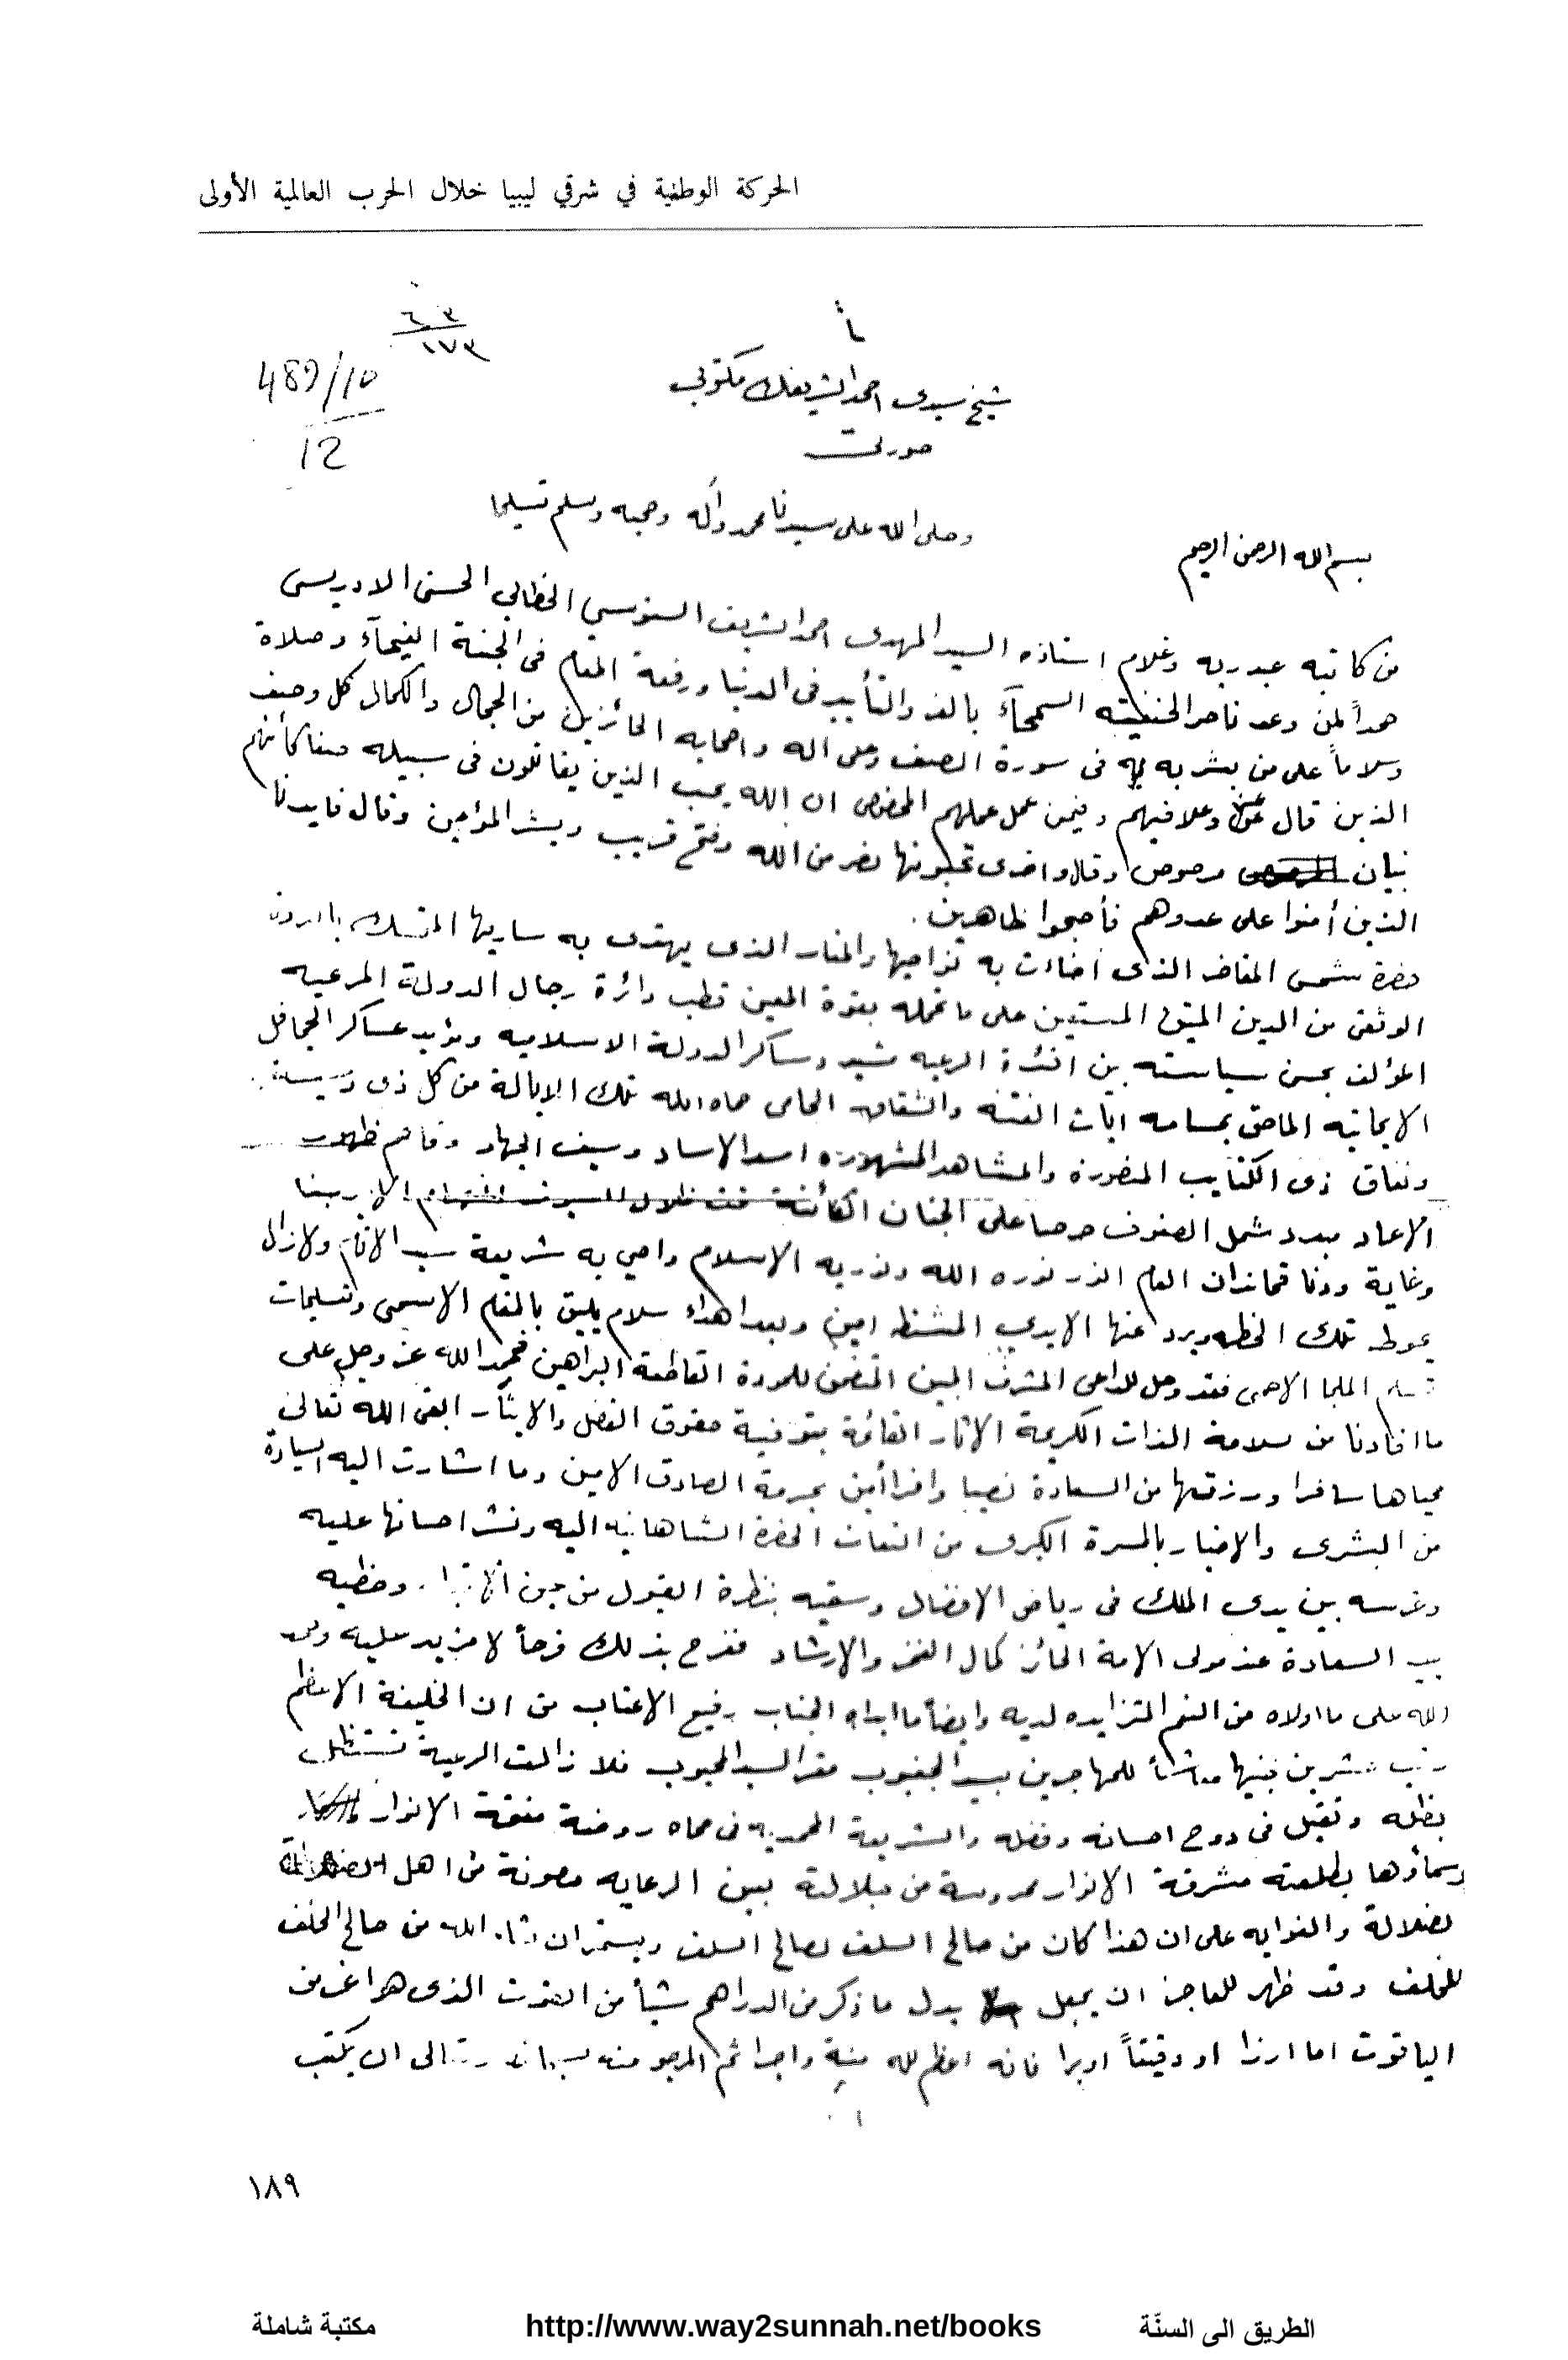 الحركة الوطنية في شرقي ليبيا خلال الحرب العالمية الأولى
٦٣
١٧٣
489/10
12
شيخ سيدى احمد الشريفك مكتوبى
صورتى
بسم الله الرحمن الرحيم
وصلى الله على سيدنا محمد وآله وصحبه وسلم تسليما
من كاتبه عبد ربه وغلام استاذه السيد المهدى احمد الشريف السنوسي الخطابي الحسنى الادريسى
حمداً لمن وعد ناصر الحنفيته السمحآء بالعز والتأييد فى الدنيا ورفعة المقام فى الجنة الفيحآء وصلاة
وسلاماً على من بشر به فى سورة الصف وعلى اله واصحابه الحائزين من الجمال والكمال كل وصف
الذين قال عز وعلا فيهم وفيمن عمل عملهم المخصوص ان الله يحب الذين يقاتلون فى سبيله صفا كأنهم
بنيان مرصوص وقال واخرى تحبونها نصر من الله وفتح قريب وبشر المؤمين وقال فايدنا
الذين أمنوا على عدوهم فأصبحوا ظاهرين.
حضرة شمس المفاخر الذى أضاءت به نواحيها والمنار الذى يهتدى به ساريها المتمسك بالعروة
الوثقى من الدين المتين المستعين على ما تحمله بقوة المعين قطب دائرة رجال الدولة المرعيه
المؤلف بحسن سياسته بين افئدة الرعيه مشيد وساكر الدولة الاسلاميه ومؤيد عساكر الجحافل
الايمانيه الماحق بحسامه ايات الفتنه والشقاق الحامى حماه الله تلك الايالة من كل ذى دسيسة
ونفاق ذى الكتايب المنصورة والمشاهد المشهوره اسد الاساد وسيف الجهاد وقاصم ظهور
الاعاد مبدد شمل الصفوف حرصا على الجنان الكائنة تحت ظلال السيوف
وغاية ودنا قماندان العام انور نوره الله ونور به الاسلام واحي به شريعة سيد الانام ولازال
يحوط تلك الخطه ويرد عنها الايدي المشتطه امين وبعد اهداء سلام يليق بالمقام الاسمى وتسليمات
الملجا الاحمى فقد وصل للداعى المشرف المبين المتضمن للمودة القاطعة البراهين فحمد الله عز وجل على
ما افادنا من سلامة الذات الكريمة الاثار القائمة بتوفية حقوق الفضل والايثآر ابقى الله تعالى
محياها سافرا ورزقها من السعادة نصيبا وافرا أمين بحرمة الصادق الامين وما اشارت اليه السيادة
من البشرى والاخبار بالمسرة الكبرى من التفات الحضرة الشاهانيه اليه ونشر احسانها عليه
وغرسه بين يدى الملك فى رياض الافضال وسقيه بنظرة القبول من عين وخطبه
السعادة عند مولى الامة الحائز كمال الفخر والارشاد ففرح بذلك فرحاً لا مزيد عليه وحمد
الله على ما اولاه من النعم المتزايده لديه وايضاً ما ابداه الجناب رفيع الاعتاب من ان الخليفة الاعظم
رتب عشرين جنيها معاشاً للمهاجرين بسيد الجغبوب مقر السيد المحبوب فلا زالت الرعية تستظل
بظله وتقيل فى دوح احسانه وفضله والشريعة المحمديه فى حماه روضة الانوار
وسماؤها بطلعته مشرقة الانوار محروسة من جلالته بعين الرعايه مصونة من اهل
لضلالة والغوايه على ان هذا كان من صالح السلف لصالح السلف ويستمر ان شاء الله من صالح الخلف
للخلف وقد ظهر للعاجز ان يجعل بدل ما ذكر من الدراهم شيأ من القوت الذى هو اعز من
الياقوت اما ارزا او دقيقاً او برا فانه اعظم لله منية واجرا ثم المرجو منه سبحانه وتعالى ان يكتب
١٨٩
مكتبة شاملة
http://www.way2sunnah.net/books
الطريق الى السنّة